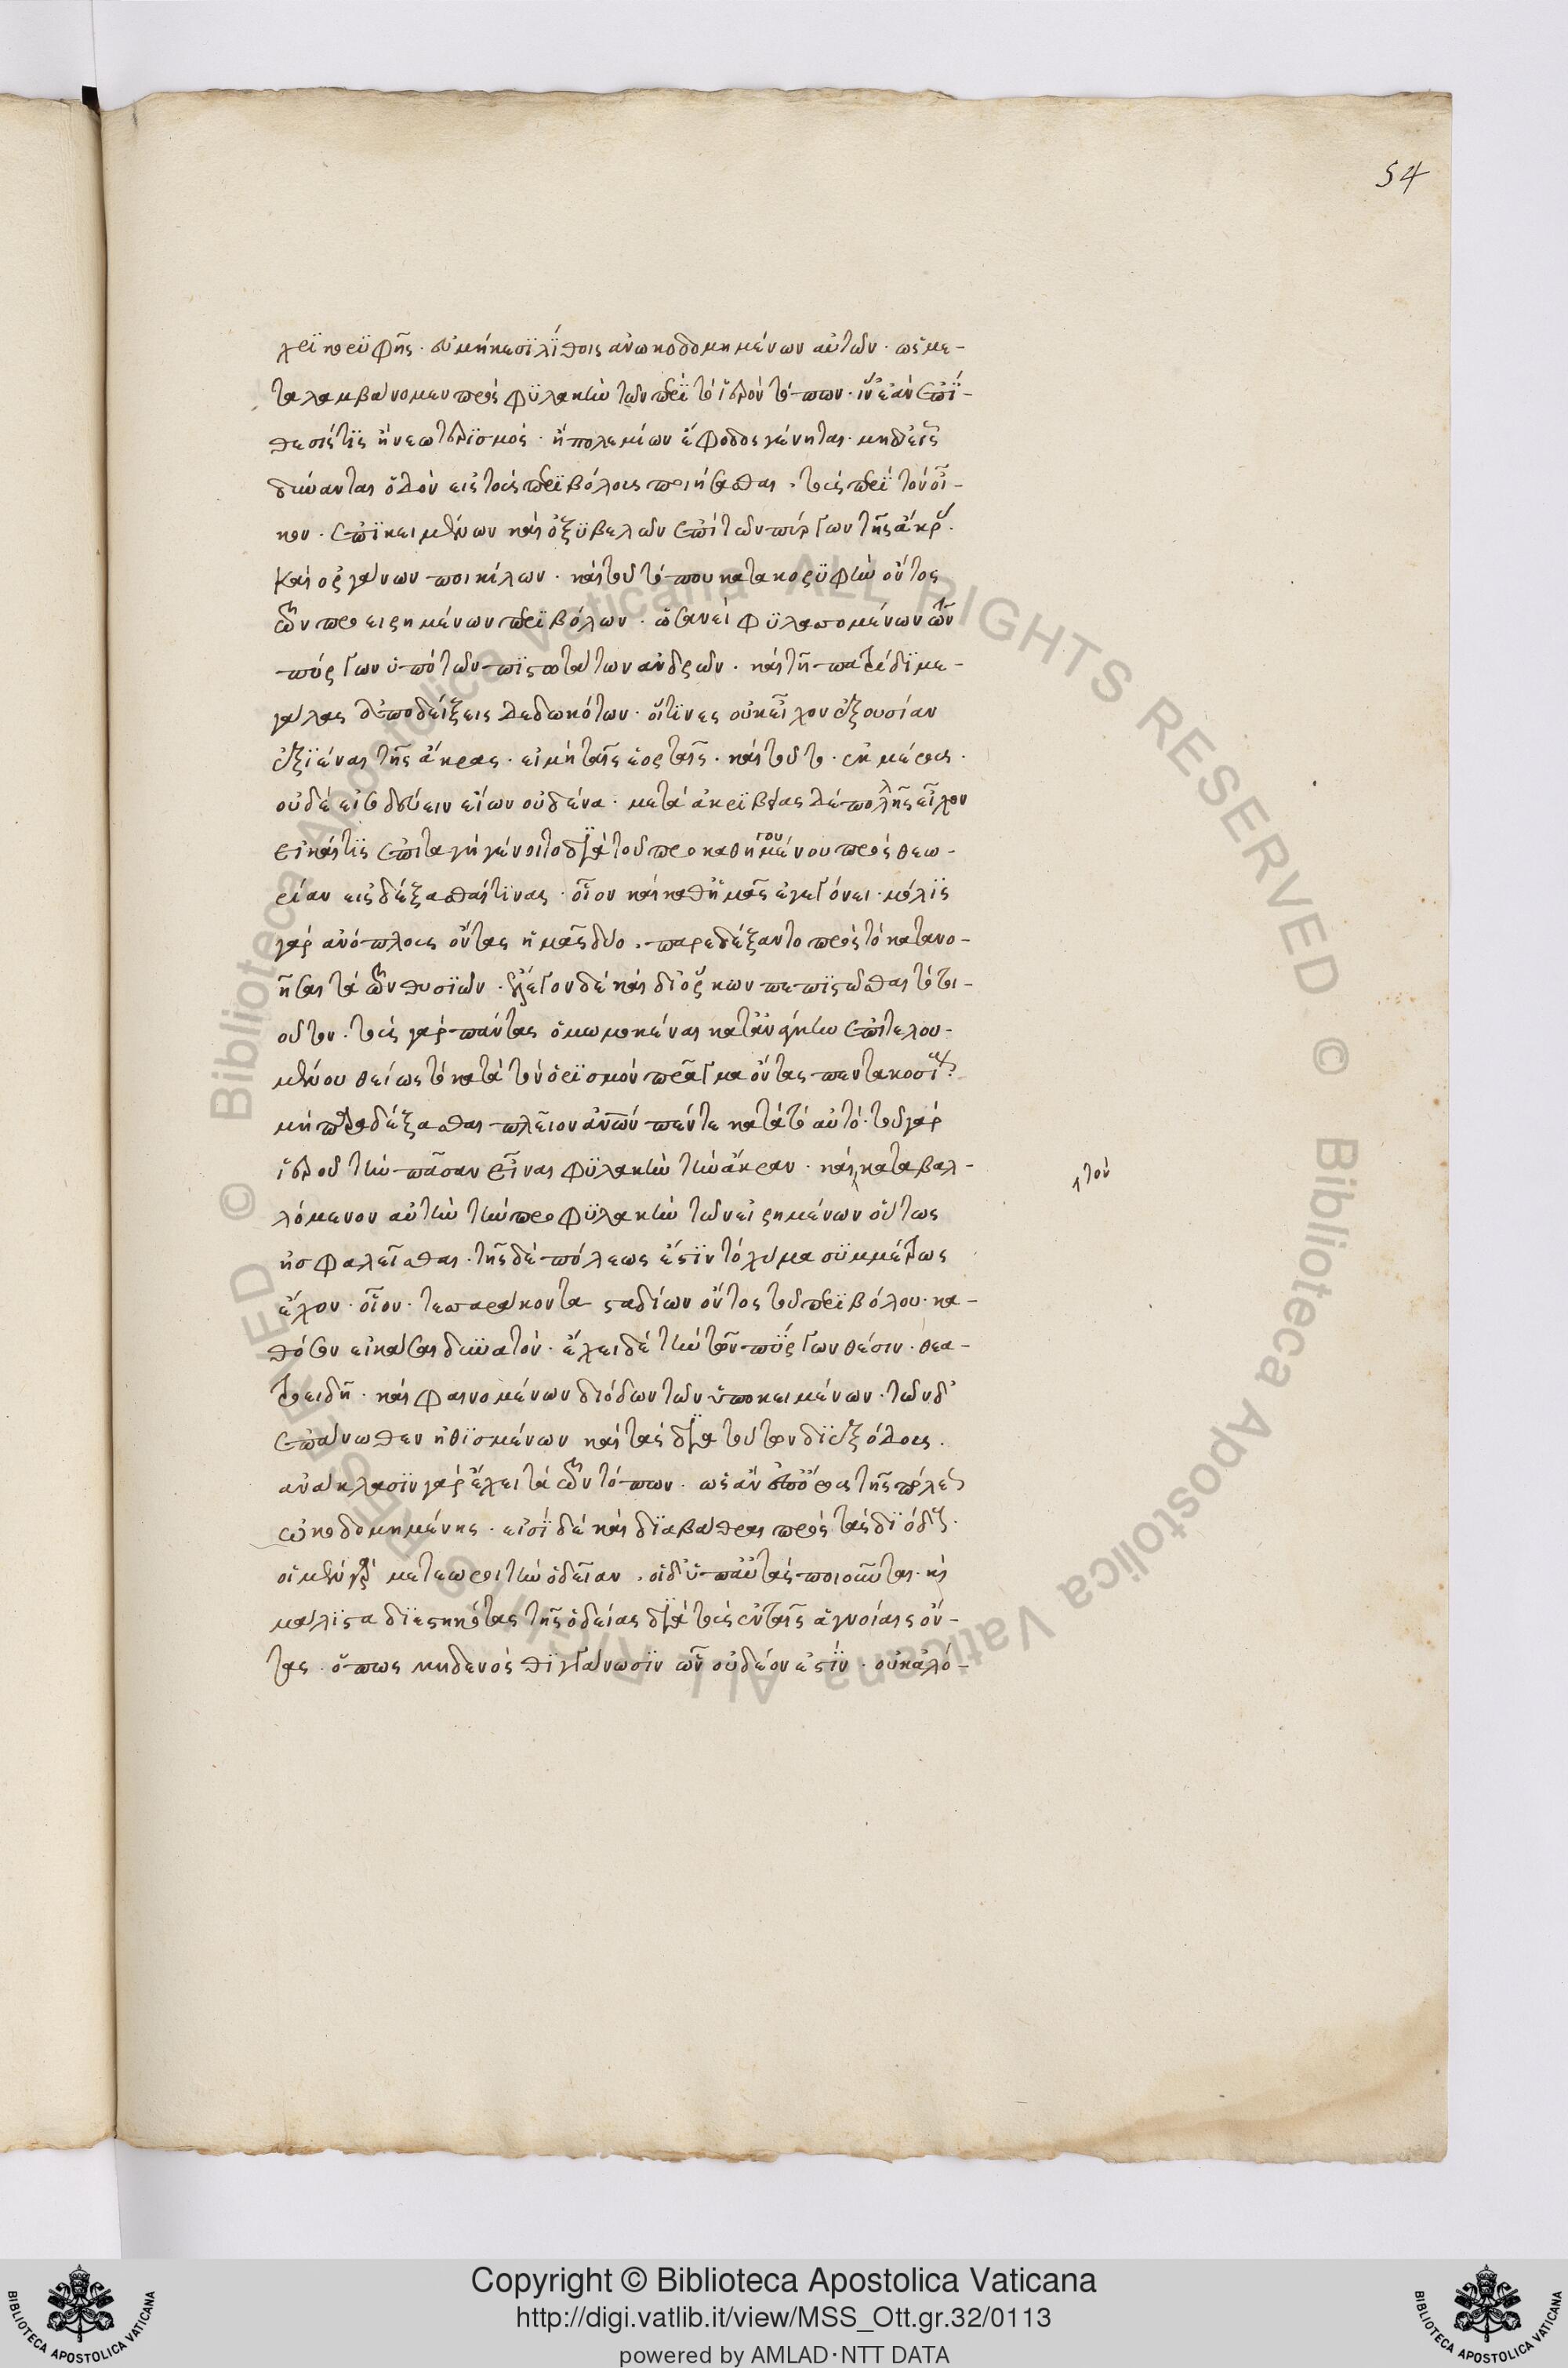 54
χρι κορυφῆς· εὐμήκεσι λίθοις ἀνωκοδομημένων αὐτῶν· ὡς με-
ταλαμβάνομεν πρὸς φυλακὴν τῶν περὶ τὸ ἱερὸν τόπων· ἵν' ἐὰν ἐπί-
θεσίς τις ἢ νεωτερισμὸς· ἢ πολεμίων ἔφοδος γένηται· μηδεὶς
δύνανται ὁδὸν εἰς τοὺς περιβόλους ποιήσασθαι· τοὺς περὶ τὸν οἶ-
κον· ἐπικειμένων καὶ ὀξυβελῶν ἐπὶ τῶν πύργων τῆς ἄκρ
καὶ ὀργάνων ποικίλων· καὶ τοῦ τόπου κατὰ κορυφὴν ὄντος
τῶν προειρημένων περιβόλων· ὡσανεὶ φυλασσομένων τῶν
πύργων ὑπὸ τῶν πιστοτάτων ἀνδρῶν· καὶ τῇ πατρίδι με-
γάλας ἀποδείξεις δεδωκότων· οἵτινες οὐκ εἶχον ἐξουσίαν
ἐξιέναι τῆς ἄκρας· εἰ μὴ ταῖς ἑορταῖς· καὶ τοῦτο· ἐκ μέρους·
οὐδὲ εἰσοδεύειν εἴων οὐδένα· μετὰ ἀκριβείας δὲ πολλῆς εἶχον
εἰ καί τις ἐπιταγὴ γένοιτο διὰ τοῦ προκαθηγουμένου πρὸς θεω-
ρίαν εἰσδέξασθαί τινας· οἷον καὶ καθ' ἡμᾶς ἐγεγόνει· μόλις
γὰρ ἀνόπλους ὄντας ἡμᾶς δύο· παρεδέξαντο πρὸς τὸ κατανο-
ῆσαι τὰ τῶν θυσιῶν· ἔλεγον δὲ καὶ δι' ὅρκων πεπιστῶσθαι τὸ τοι-
οῦτον· τοὺς γὰρ πάντας ὀμωμοκέναι κατ' ἀνάγκην ἐπιτελου-
μένου θείως τὸ κατὰ τὸν ὁρισμὸν πρᾶγμα ὄντας πεντακοσίους
μὴ παραδέξασθαι πλεῖον ἀνῶν πέντε κατὰ τὸ αὐτό· τοῦ γὰρ
ἱεροῦ τὴν πᾶσαν εἶναι φυλακὴν τὴν ἄκραν· καὶ καταβαλ-
τὸν
λόμενον αὐτὴν τὴν προφυλακὴν τῶν εἰρημένων οὕτως
ἠσφαλεῖσθαι· τῆς δὲ πόλεως ἐστὶν τὸ χύμα συμμέτρως
ἔχον· οἷον· τεσσαράκοντα σταδίων ὄντος τοῦ περιβόλου· κα-
θόσον εἰκάσαι δυνατόν· ἔχει δὲ τὴν τῶν πύργων θέσιν· θεα-
τροειδῆ· καὶ φαινομένων διόδων τῶν ὑποκειμένων· τῶν δ'
ἐπάνωθεν εἰθισμένων καὶ τὰς διὰ τούτων διεξόδους·
ἀνάκλασιν γὰρ ἔχει τὰ τῶν τόπων· ὡς ἂν ἐπ' ὄρους τῆς πόλεως
ᾠκοδομημένης· εἰσὶ δὲ καὶ διαβάθραι πρὸς τὰς διόδους·
οἱ μὲν γὰρ μετέωροι τὴν ὁδείαν· οἱ δ' ὑπ' αὐτὰς ποιοῦνται· καὶ
μάλιστα διεστηκότας τῆς ὁδείας διὰ τοὺς ἐν ταῖς ἁγνείαις ὄν-
τας· ὅπως μηδενὸς θιγγάνωσιν ὧν οὐ δέον ἐστίν· οὐκ ἀλό-
Copyright © Biblioteca Apostolica Vaticana
http://digi.vatlib.it/view/MSS_Ott.gr.32/0113
powered by AMLAD·NTT DATA